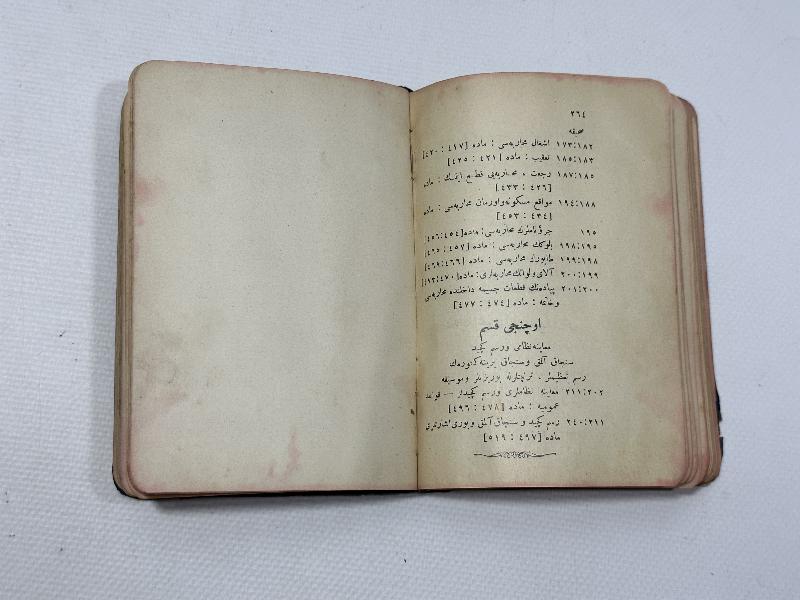 ٢٦٤
صحیفه
١٧٣:١٨٢ اشغال محاربه‌سی : ماده [٤١٧ : ٤٢٠]
١٨٥:١٨٣ تعقیب : ماده [٤٢١ : ٤٢٥]
١٨٧:١٨٥ رجعت ، محاربه‌یی قطع ایتمك : ماده
[٤٢٦ : ٤٣٣]
١٩٤:١٨٨ مواقع مسكونه واورمان محاربه‌سی : ماده
[٤٣٤ : ٤٥٣]
١٩٥ محاربه‌سی : ماده [٤٥٤:٤٥٦]
١٩٨:١٩٥ بلوكك محاربه‌سی : ماده [٤٥٧ : ٤٦٥]
١٩٩:١٩٨ طابورك محاربه‌سی : ماده [٤٦٦:٤٦٩]
٢٠٠:١٩٩ آلای ولوانك محاربه‌لری: ماده [٤٧٠:٤٧٣]
٢٠١:٢٠٠ پیاده‌نك قطعات جسیمه داخلنده محاربه‌سی
وخاتمه : ماده [٤٧٤ : ٤٧٧]
اوچنجی قسم
معاینه نظامی ورسم كچید
سنجاق آلمق وسنجاق یرینه كتورمك
رسم تعظیملر ، ترامپته‌لرله بوریزنلر وموسیقه
٢١١:٢٠٢ معاینه نظاملری ورسم كچیدلر — قواعد
عمومیه : ماده [٤٧٨ : ٤٩٦]
٢٤٠:٢١١ رسم كچید و سنجاق آلمق وبوری اشارتلری
ماده [٤٩٧ : ٥١٩]